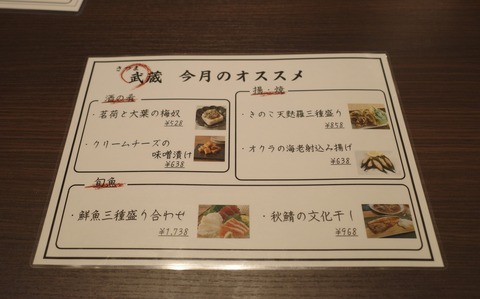 さつま
武蔵 今月のオススメ
酒の肴
・茗荷と大葉の梅奴
¥528
・クリームチーズの
味噌漬け
¥638
揚・焼
・きのこ天麩羅三種盛り
¥858
・オクラの海老射込み揚げ
¥638
旬魚
・鮮魚三種盛り合わせ
¥1,738
・秋鯖の文化干し
¥968